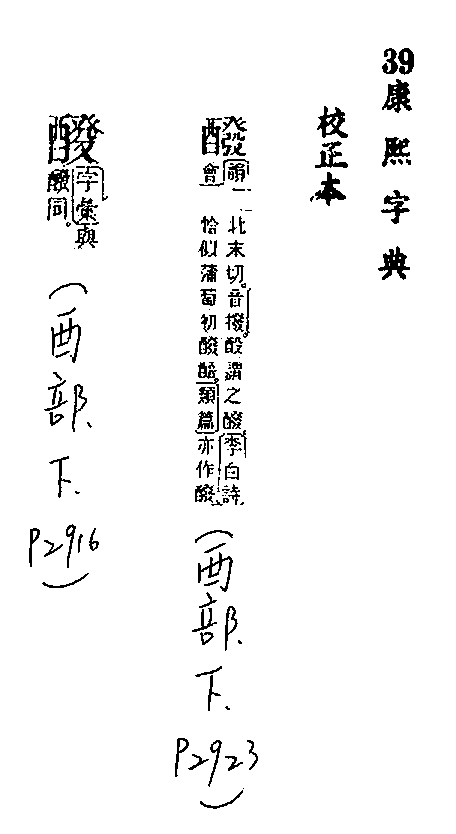 39康熙字典
校正本
醱
韻
會
北末切。音撥。酘謂之醱。李白詩
恰似蒲萄初醱醅。類篇亦作
(酉部.下.P2923)
字彙與
醱同。
(酉部.下.P2916)